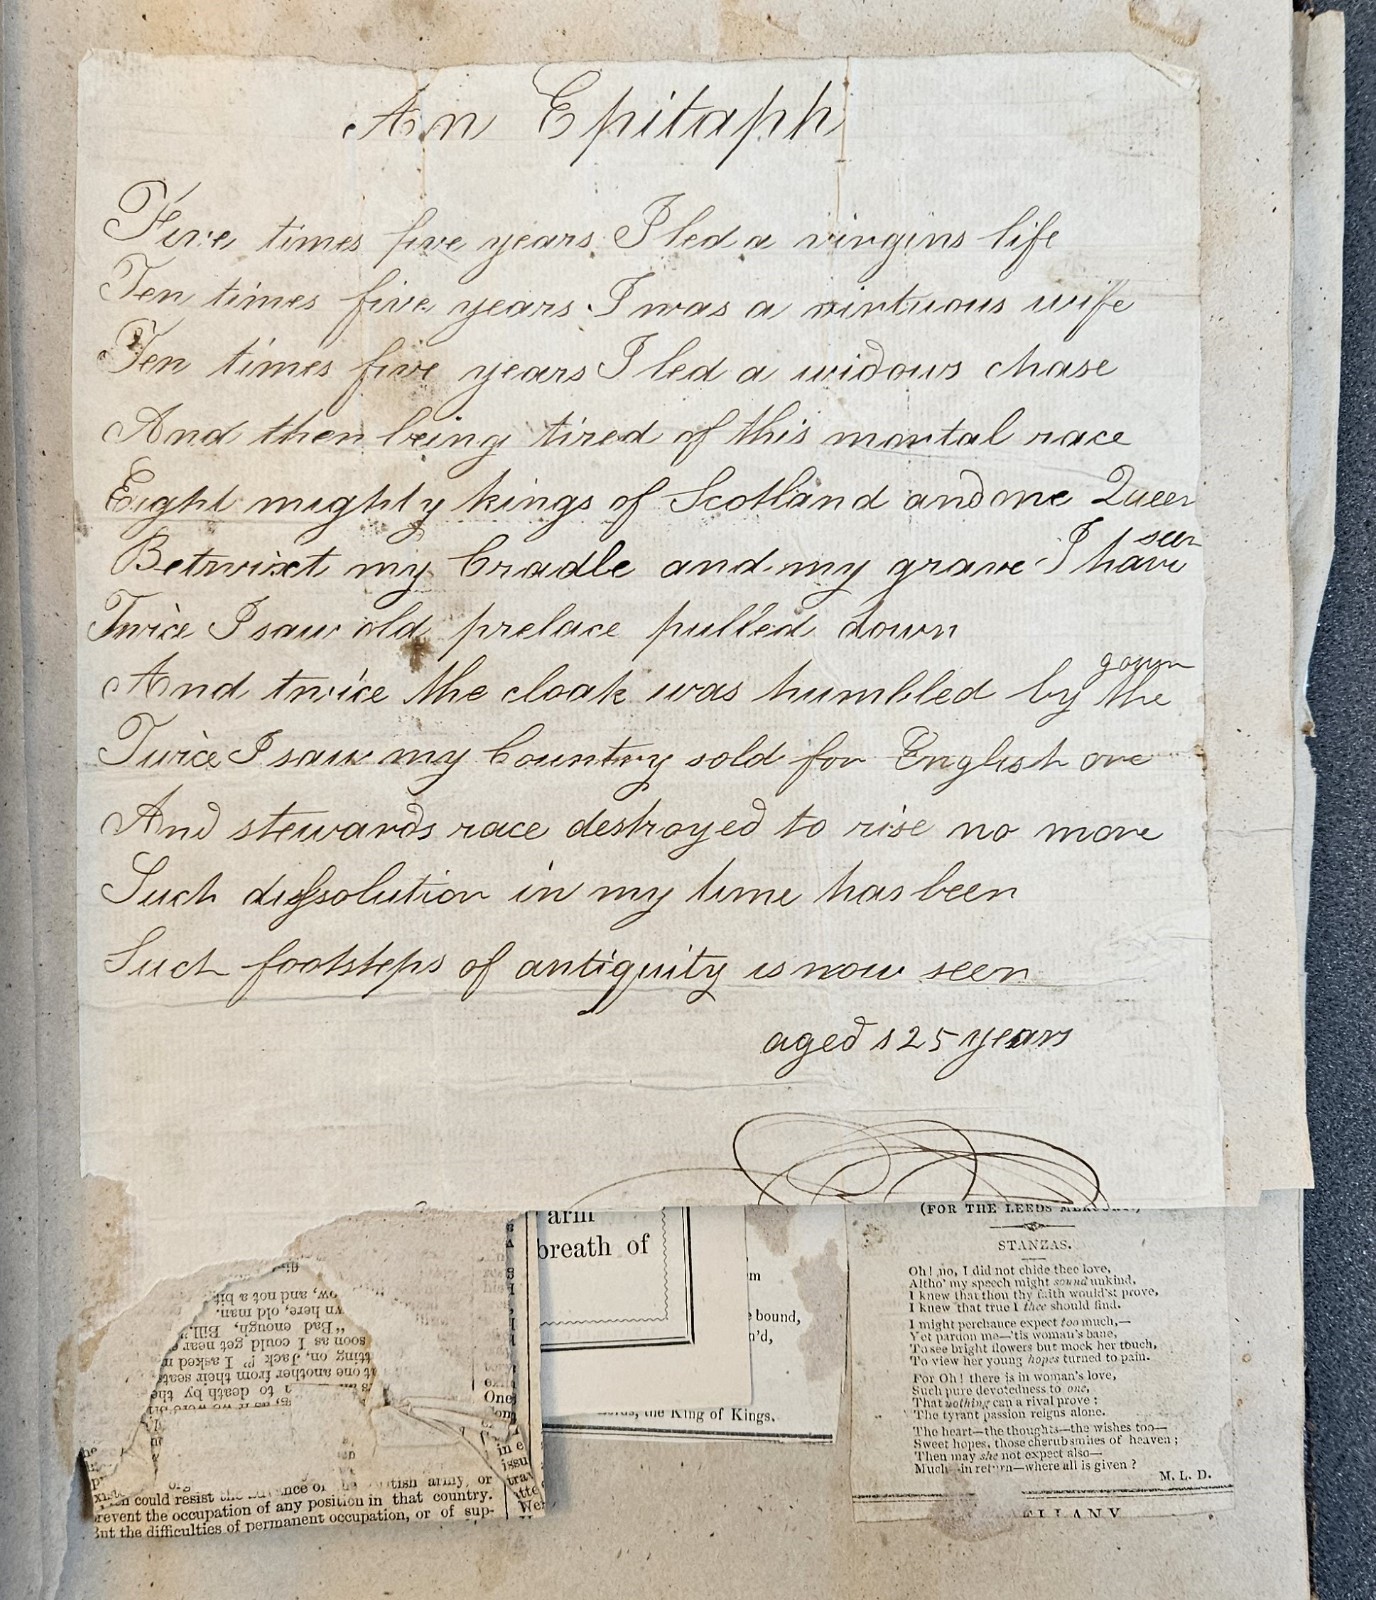 An Epitaph
Five times five years I led a virgins life
Ten times five years I was a virtuous wife
Ten times five years I led a widows chase
And then being tired of this mortal race
Eight mighty kings of Scotland and one Queen
Betwixt my Cradle and my grave I have seen
Twice I saw old prelace pulled down
And twice the cloak was humbled by the gown
Twice I saw my Country sold for English ore
And stewards race destroyed to rise no more
Such dissolution in my time has been
Such footsteps of antiquity is now seen
aged 125 years
arm
breath of
m
e bound,
n'd,
the King of Kings.
(FOR THE LEEDS MERCURY.)
STANZAS.
Oh! no, I did not chide thee love,
Altho' my speech might sound unkind,
I knew that thou thy faith would'st prove,
I knew that true I thee should find.
I might perchance expect too much,—
Yet pardon me—'tis woman's bane,
To see bright flowers but mock her touch,
To view her young hopes turned to pain.
For Oh! there is in woman's love,
Such pure devotedness to one,
That nothing can a rival prove;
The tyrant passion reigns alone.
The heart—the thoughts—the wishes too—
Sweet hopes, those cherub smiles of heaven;
Then may she not expect also—
Much in return—where all is given?
M. L. D.
ELLANY
ow, and not a bit
wn here, old man.
"Bad enough, Bill."
soon as I could get near
tting on, Jack!" I asked
at one another from their seats
to death by the
as if we were
One
in e
issu
trav
could resist the advance of the British army, or
revent the occupation of any position in that country.
But the difficulties of permanent occupation, or of sup-